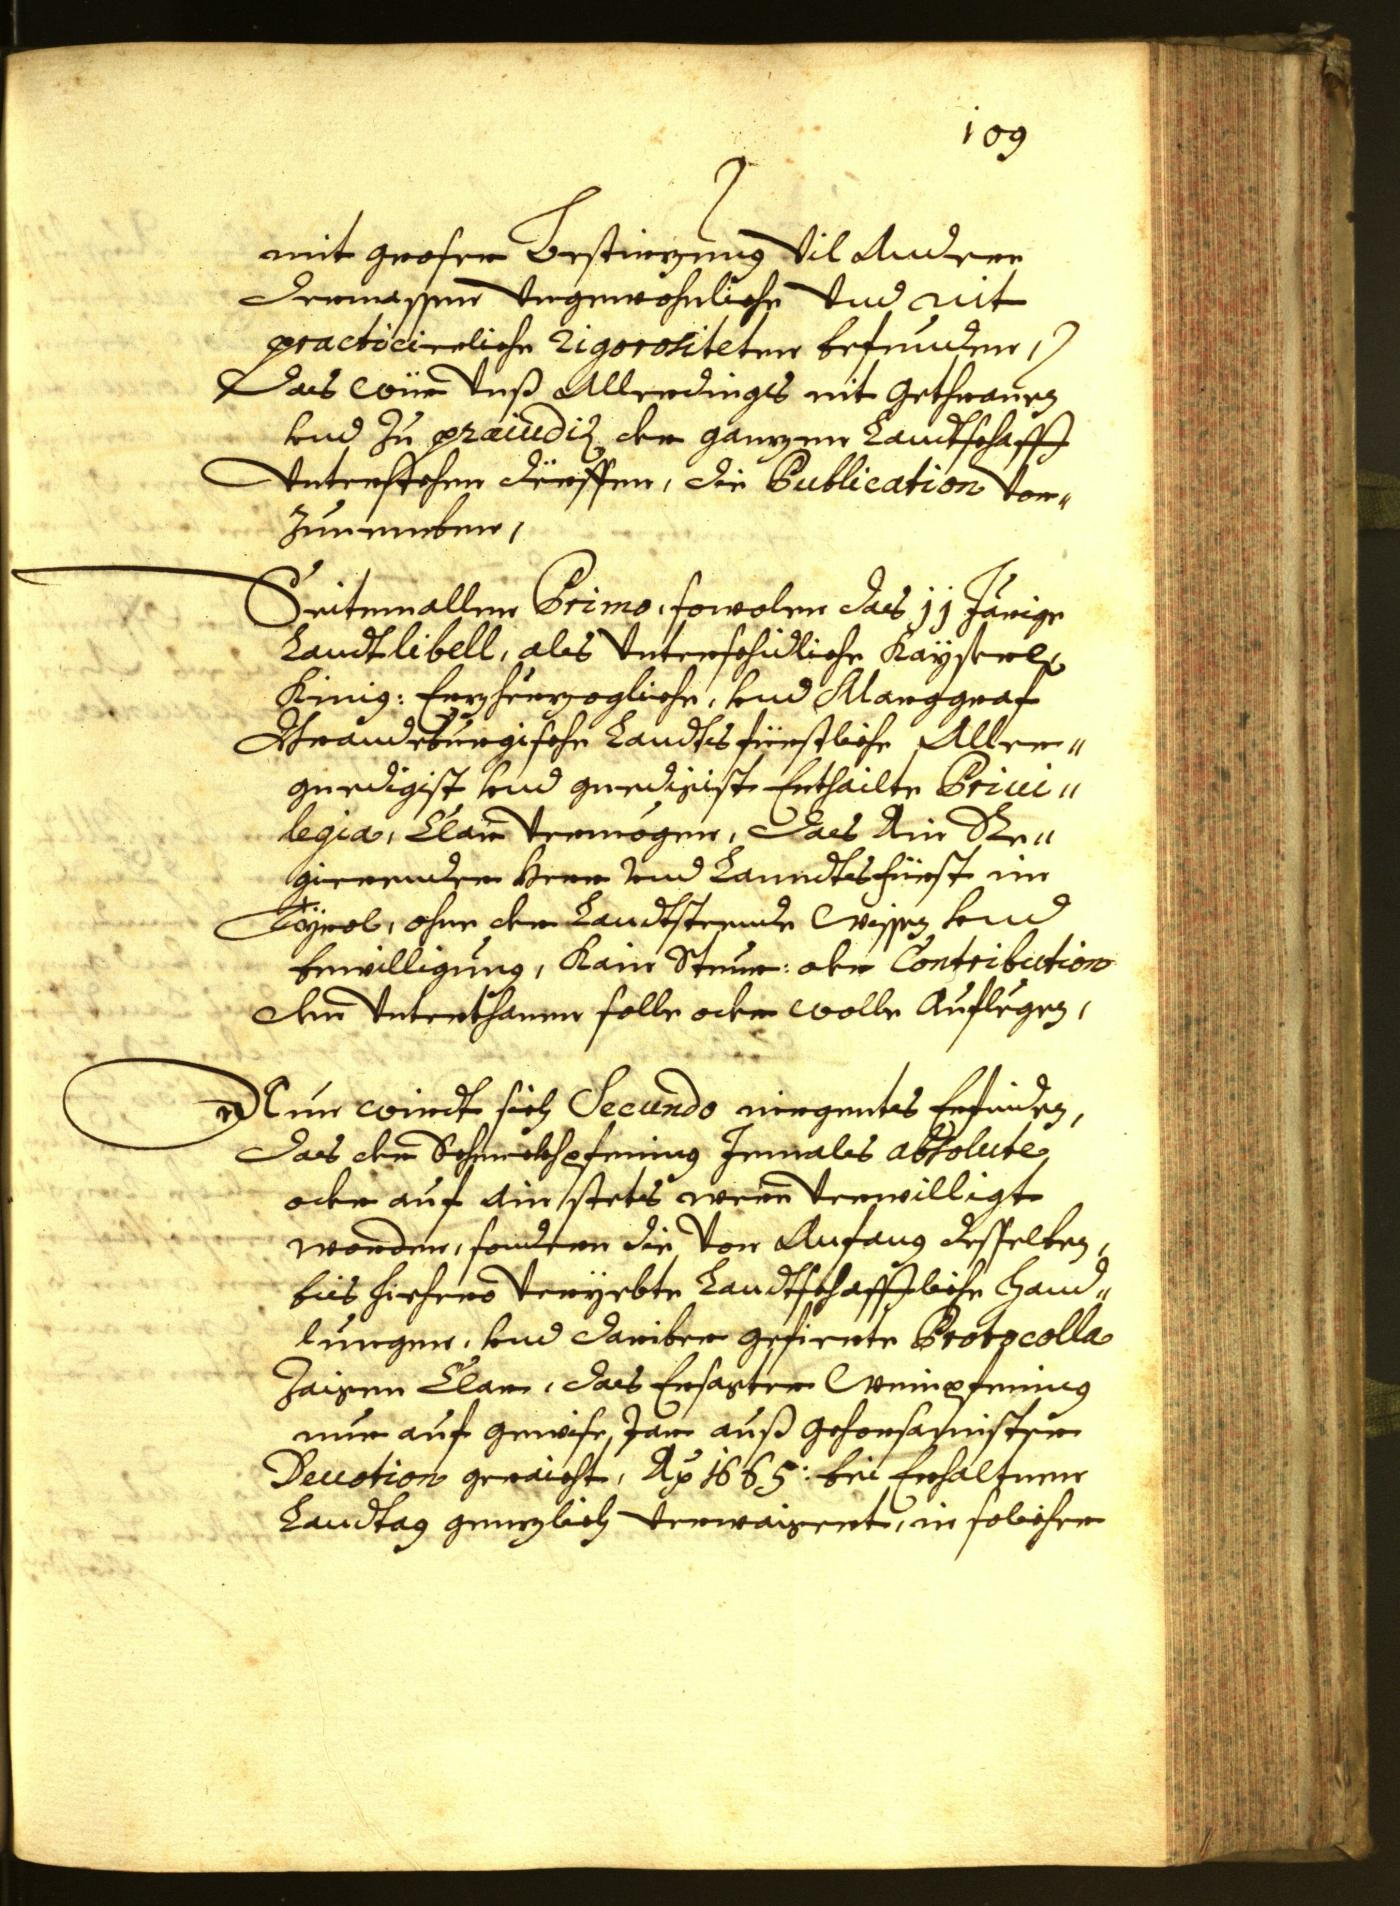 109
mit grosser Bestirzung vil Andere
dermassen vngewohnliche vnd nit
practicierliche Rigorositeten befunden,
Das wür vnß Allerdings nit gethrauen
vnd zu præiudiz der ganzen Landtschafft
vnterstehen dërffen, die Publication vor„
zunemben,
Seitemallen Primo, sowolen das 11 Järige
Landtlibell, als vnterschidliche Kayserl.
Kinig: Erzherzogliche, vnd Marggraf
Brandeburgische Landtsfürstliche Aller„
gnedigist vnd gnedigist Erthailte Priui„
legia, Clar vermögen, das Ain Re„
gierender Herr vnd Lanndtsfürst in
Tÿrol, ohne der Landtstende wissen vnd
bewilligung, Kain Steur: oder Contribution
den vnterthanen solle oder wolle Auflegen,
Nun wirdt sich Secundo niergents Erfinden,
das der Schreckhpfening Jemals absolute
oder auf ain stets weren verwilligt
worden, sondern die von Anfang desselben,
bis hiehero veryebte Landtschafftliche Hand„
lungen, vnd dariber gefierte Protocolla
Zaigen Clar, das Ersagter Weinpfening
nur auf gewise Jar auß gehorsamister
Deuotion geraicht, Ao 1665: bei Erhaltnem
Landtag genzlich verwaigert, in solicher